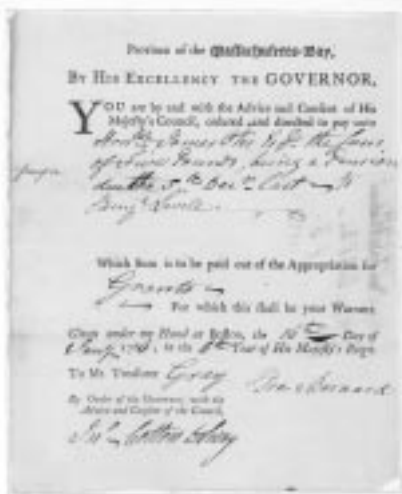 Province of the Massachusetts-Bay,
By His Excellency the GOVERNOR,
YOU are by and with the Advice and Consent of His
Majesty's Council, ordered and directed to pay unto
Honble James Otis Esq. the Sum
of Pounds, being a Pension
due the 5th Decr. last to
Benja.
Which Sum is to be paid out of the Appropriation for
Grants
For which this shall be your Warrant
Given under my Hand at Boston, the 16th Day of
Jany. in the 6th Year of His Majesty's Reign
To Mr. Treasurer Gray Fra Bernard
By Order of the Governor, with the
Advice and Consent of the Council,
Jno. Cotton